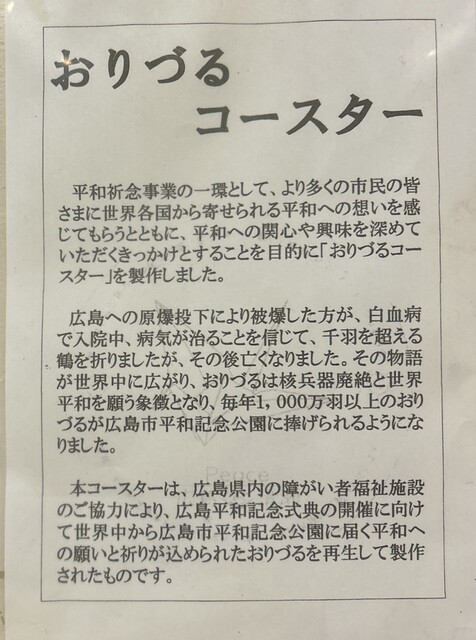 おりづる
コースター
平和祈念事業の一環として、より多くの市民の皆
さまに世界各国から寄せられる平和への想いを感
じてもらうとともに、平和への関心や興味を深めて
いただくきっかけとすることを目的に「おりづるコー
スター」を製作しました。
広島への原爆投下により被爆した方が、白血病
で入院中、病気が治ることを信じて、千羽を超える
鶴を折りましたが、その後亡くなりました。その物語
が世界中に広がり、おりづるは核兵器廃絶と世界
平和を願う象徴となり、毎年1,000万羽以上のおり
づるが広島市平和記念公園に捧げられるようにな
りました。
Peace
本コースターは、広島県内の障がい者福祉施設
のご協力により、広島平和記念式典の開催に向け
て世界中から広島市平和記念公園に届く平和へ
の願いと祈りが込められたおりづるを再生して製作
されたものです。